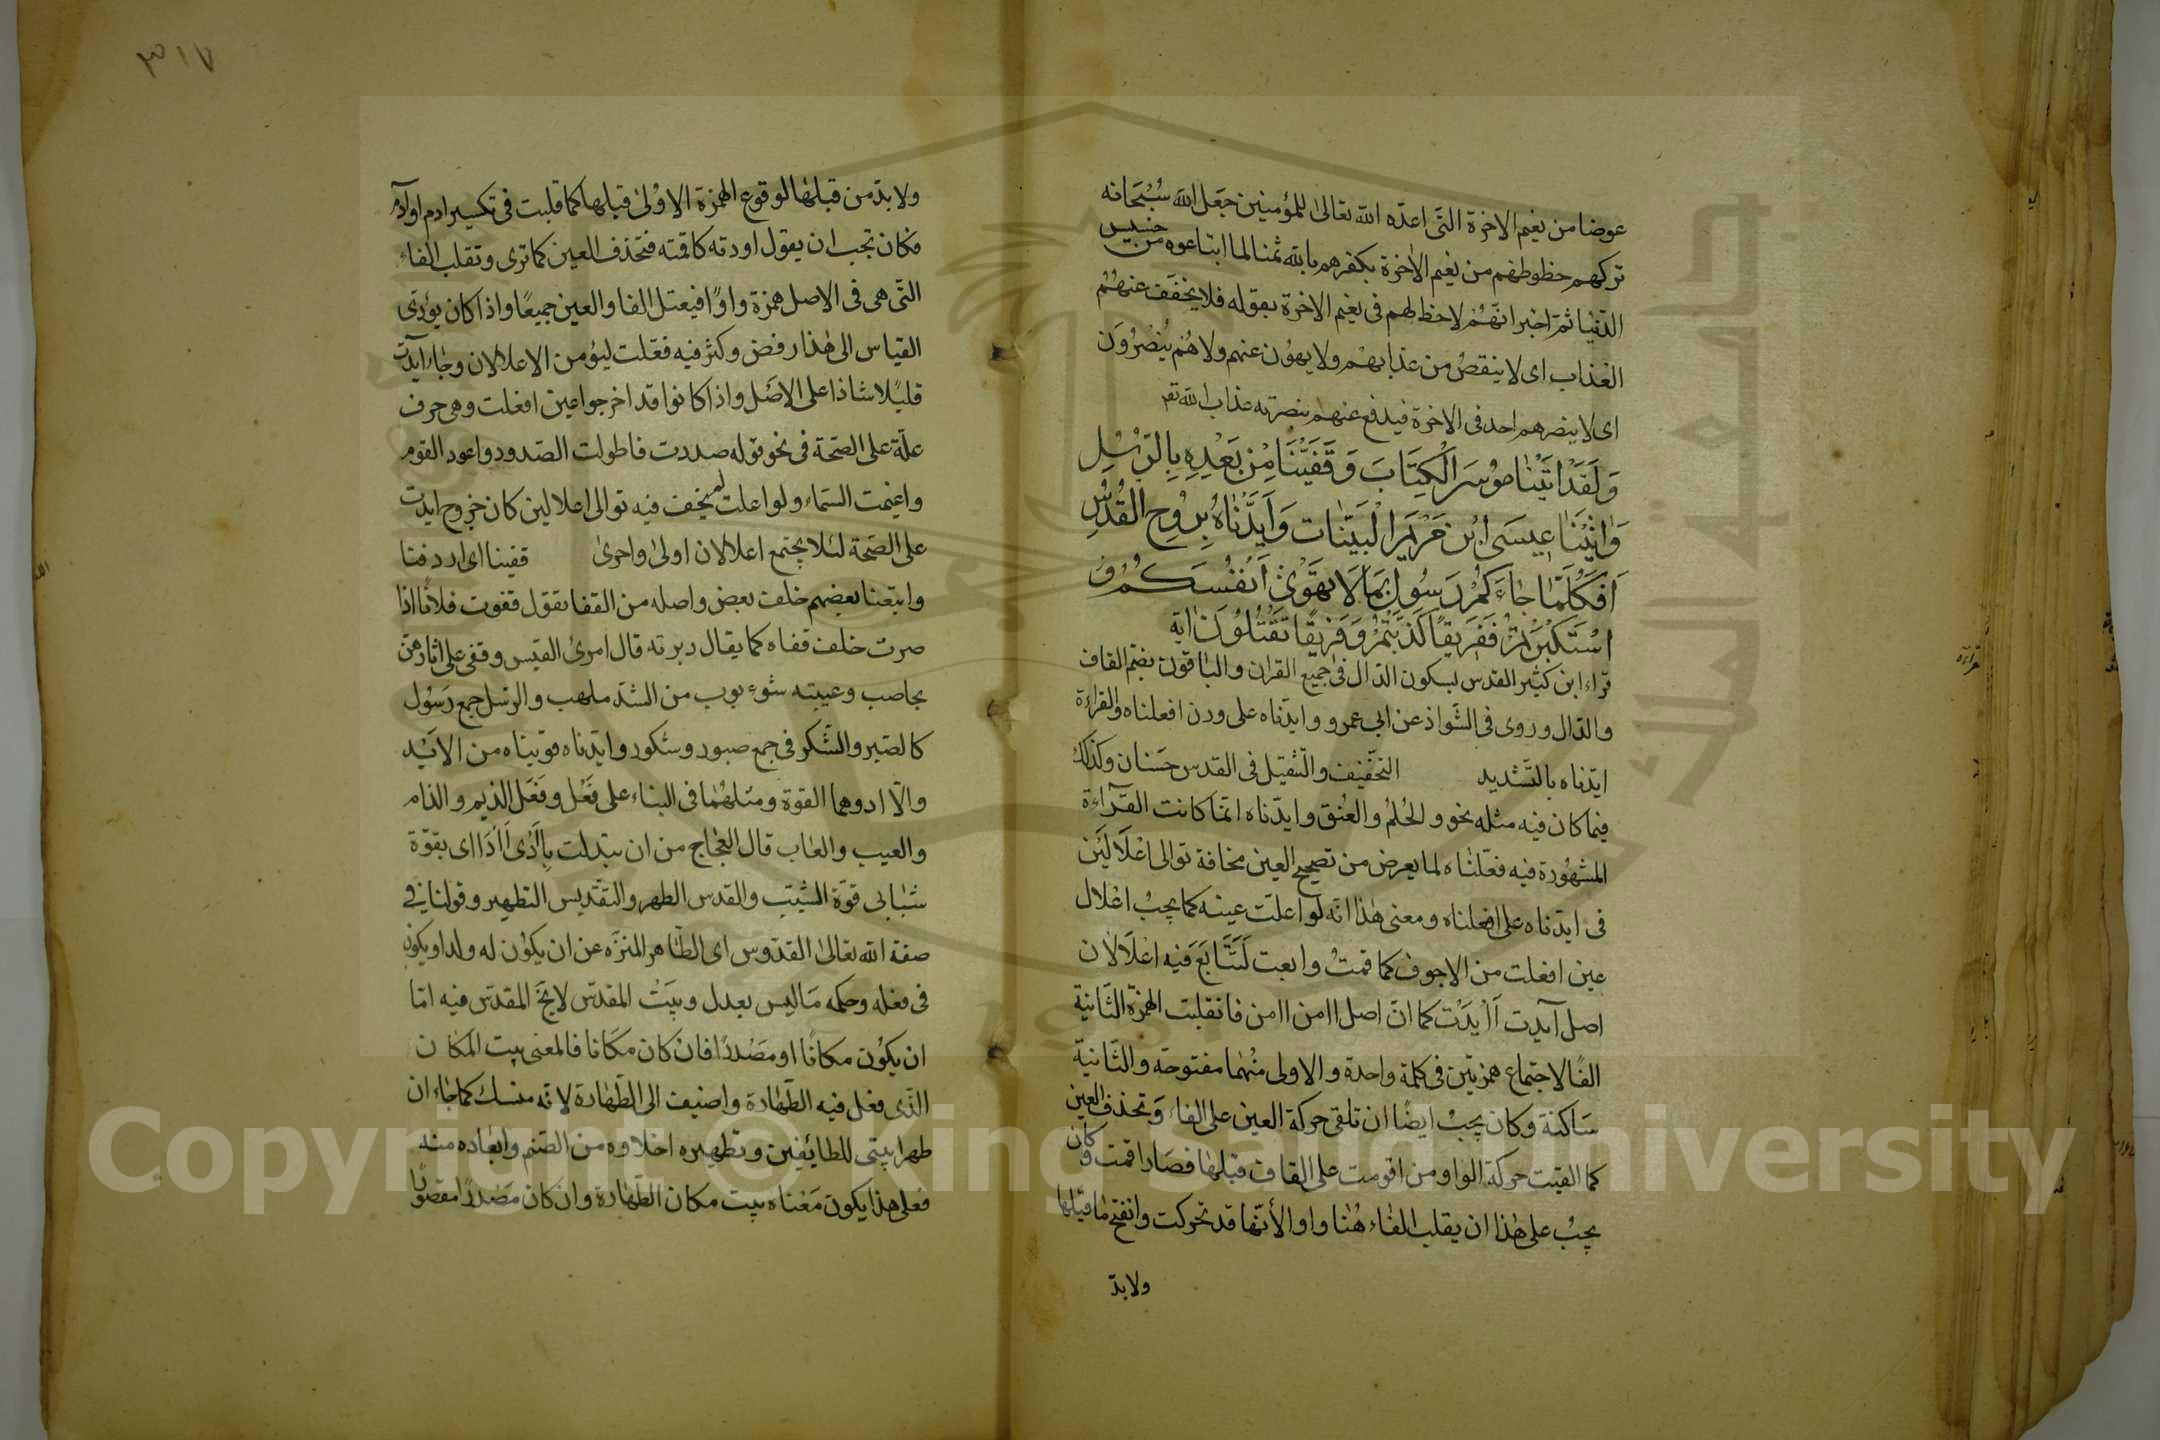 عوضا من نعيم الاخرة التى اعدّه الله تعالى للمؤمنين جعل الله سُبْحَانه
تركهم حظوظهم من نعيم الاخرة بكفرهم بالله ثمنا لما ابتاعوه من خسيس
الدّنيا ثمّ اخبر انّهُمْ لاحظ لهم فى نعيم الاخرة بقوله فلا يخفّف عنهُمُ
العذاب اى لا ينقصُ من عذابهم ولا يهون عنهم ولا هُم يُنصَرُونَ
اى لا ينصرهم احد فى الاخرة فيدفع عنهم بنصرته عذاب الله تع
وَلَقَدْ اتَيْنَا مُوسَى الْكِتَابَ وَقَفَّيْنَا مِنْ بَعْدِهِ بِالرُّسُلِ
وَاتَيْنَا عِيسَى ابْن مَرْيَمَ الْبَيّنَات وَاَيَّدْنَاهُ بِرُوحِ القُدُسِ
اَفَكُلَّمَا جَاءَكُمْ رَسُول بِمَا لَا تَهْوَى اَنْفُسَكُمُ
اسْتَكْبَرْتُمْ فَفَرِيقًا كَذَّبْتُمْ وَفَرِيقًا تَقْتُلُونَ اية
قراء ابن كثير القدس بسكون الدّال فى جميع القران والباقون بضم القاف
والدّال وروى فى الشّواذ عن ابى عمرو وايدناه على وزن افعلناه والقراءة
ايّدناه بالتّشديد التخفيف والتّثقيل فى القدس حَسَنان وكذلك
فيما كان فيه مثله نحو الحُلُم والعُنق وايدناه انّما كانت القراءة
المشهُورة فيه فعّلناه لما يعرض من تصحيح العين مخافة توالى اعْلَالَيْن
فى ايدناه على افعلناه ومعنى هذا انّه لو اعلّت عينه كما يجبُ اعْلال
عين افعلت من الاجوف كما قمتُ وابعت لَتَتَابَعَ فيه اعْلَالان
اصل آيدت أَأْيَدْت كما انّ اصل اامن اامن فانقلبت الهمزة الثّانية
الفًا لاجتماع همزتين فى كلمة واحدة والاولى منهُما مفتوحة والثّانية
سَاكنة وكان يجبُ ايضًا ان تلقى حركة العين على الفاء وَتحذف العين
كما القيت حركة الواو من اقومت على القاف قبلها فصَار اقمت وكان
يجبُ على هذا ان يقلب الفاء هُنا واوا لأنّها قد تحركت وانفتح مَا قبلها
ولابدّ
٣١٧
ولابدّ من قبلها لوقوع الهمزة الاوُلى قبلها كما قلبت فى تكسير ادم اوادم
فكان تجب ان يقول اودته كاقمته فتحذف العين كما ترى وتقلب الفاء
التّى هى فى الاصل همزة واوًا فيعتل الفا والعين جميعًا واذا كان يؤدّى
القياس الى هذا رفض وكثر فيه فعّلت ليؤمن الاعلالان وجاء آيدت
قليلا شاذا على الاصَل واذا كانوا قد اخرجوا عين افعلت وهى حرف
علّة على الصّحة فى نحو قوله صددت فاطولت الصّدود واعود القوم
واغيمت السّماء ولو اعلت لم يخف فيه توالى اعلالين كان خروج ايدت
على الصّحة لئلا يجتمع اعلالان اولى واحرى قفينا اى اردفنا
واتبعنا بعضهم خلف بعض واصله من القفا تقول قفوت فلانًا اذا
صرت خلف قفاه كما يقال دبرته قال امرئ القيس وقفى على اثارهن
بحاصب وغيبته شوء بوب من الشدّ ملهب والرّسل جمع رَسُول
كالصّبر والشّكر فى جمع صبور وشكور وايّدناه قوّيناه من الايْد
والآد وهما القوة ومثلهُما فى البناء على فَعْل وفَعَل الذيم والذام
والعيب والعاب قال العجاج من ان تبدلت بِآدى اَادَا اى بقوّة
شبابى قوّة الشّيب والقدس الطهر والتقديس التطهير وقولنا فى
صفة الله تعالى القدّوس اى الطّاهر المنزّه عن ان يكوُن له ولد او يكون
فى فعله وحكمه مَاليس بعدل وبيَتُ المقدّس لا يخَ المقدّس فيه امّا
ان يكوُن مكانًا او مصْدرًا فان كان مكَانا فالمعنى بيت المكان
الذّى فعل فيه الطّهَارة واضيف الى الطّهَارة لانّه منسك كما جَاء ان
طهرا بيتى للطائفِين وتطهيره اخلاوه من الصّنم وابعَاده منه
فعلى هذا يكون مَعْناه بيت مكان الطّهارة وان كان مصْدرًا
Copyright © King Saud University
جامعة الملك سعود
1957